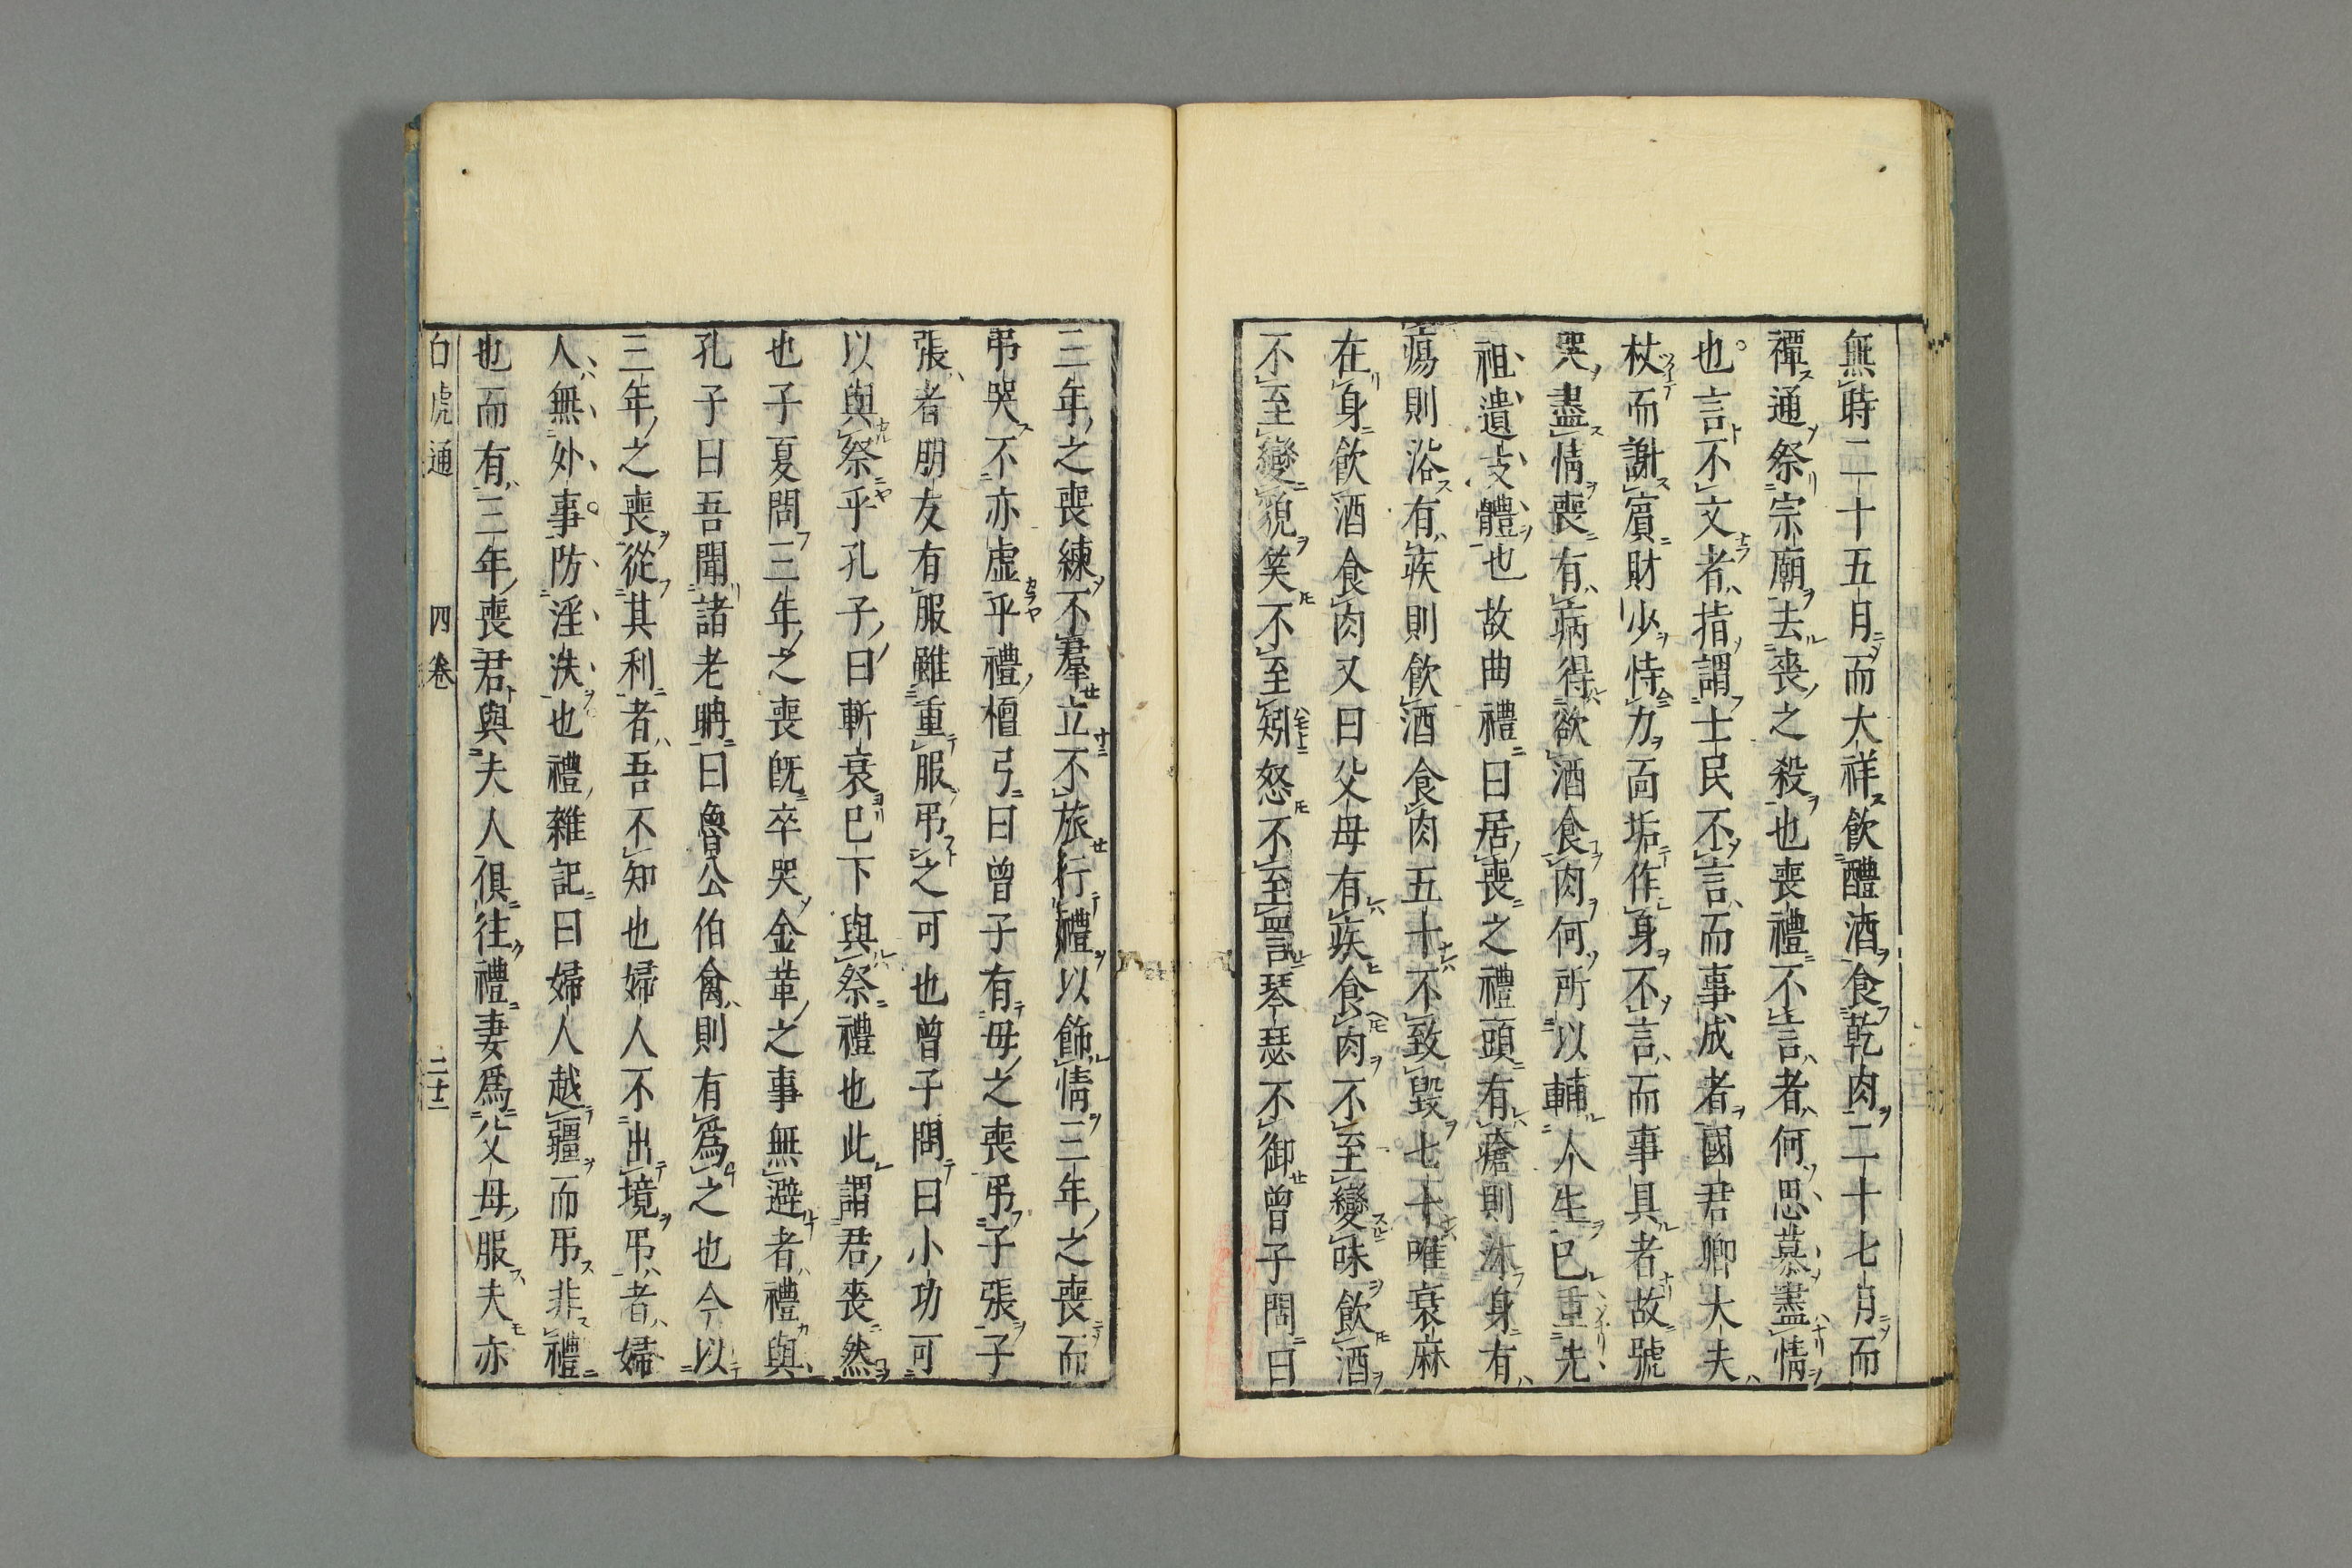 無時二十五月而大祥飲醴酒食乾肉二十七月而
禫通祭宗廟去喪之殺也喪禮不言者何思慕盡情
也言不文者指謂士民不言而事成者國君卿大夫
杖而謝賔財少恃力面垢作身不言而事具者故號
哭盡情喪有病得飲酒食肉何所以輔人生已重先
祖遺支體也故曲禮曰居喪之禮頭有瘡則沐身有
瘍則浴有疾則飲酒食肉五十不致毀七十唯衰麻
在身飲酒食肉又曰父母有疾食肉不至變味飲酒
不至變貌笑不至矧怒不至詈琴瑟不御曾子問曰
三年之喪練不羣立不旅行禮以飾情三年之喪而
弔哭不亦虛乎禮檀弓曰曾子有母之喪弔子張子
張者朋友有服雖重服弔之可也曾子問曰小功可
以與祭乎孔子曰斬衰已下與祭禮也此謂君喪然
也子夏問三年之喪旣卒哭金革之事無避者禮與
孔子曰吾聞諸老聃曰魯公伯禽則有爲之也今以
三年之喪從其利者吾不知也婦人不出境弔者婦
人無外事防淫泆也禮雜記曰婦人越疆而弔非禮
也而有三年喪君與夫人俱往禮妻爲父母服夫亦
白虎通 四卷 二十二